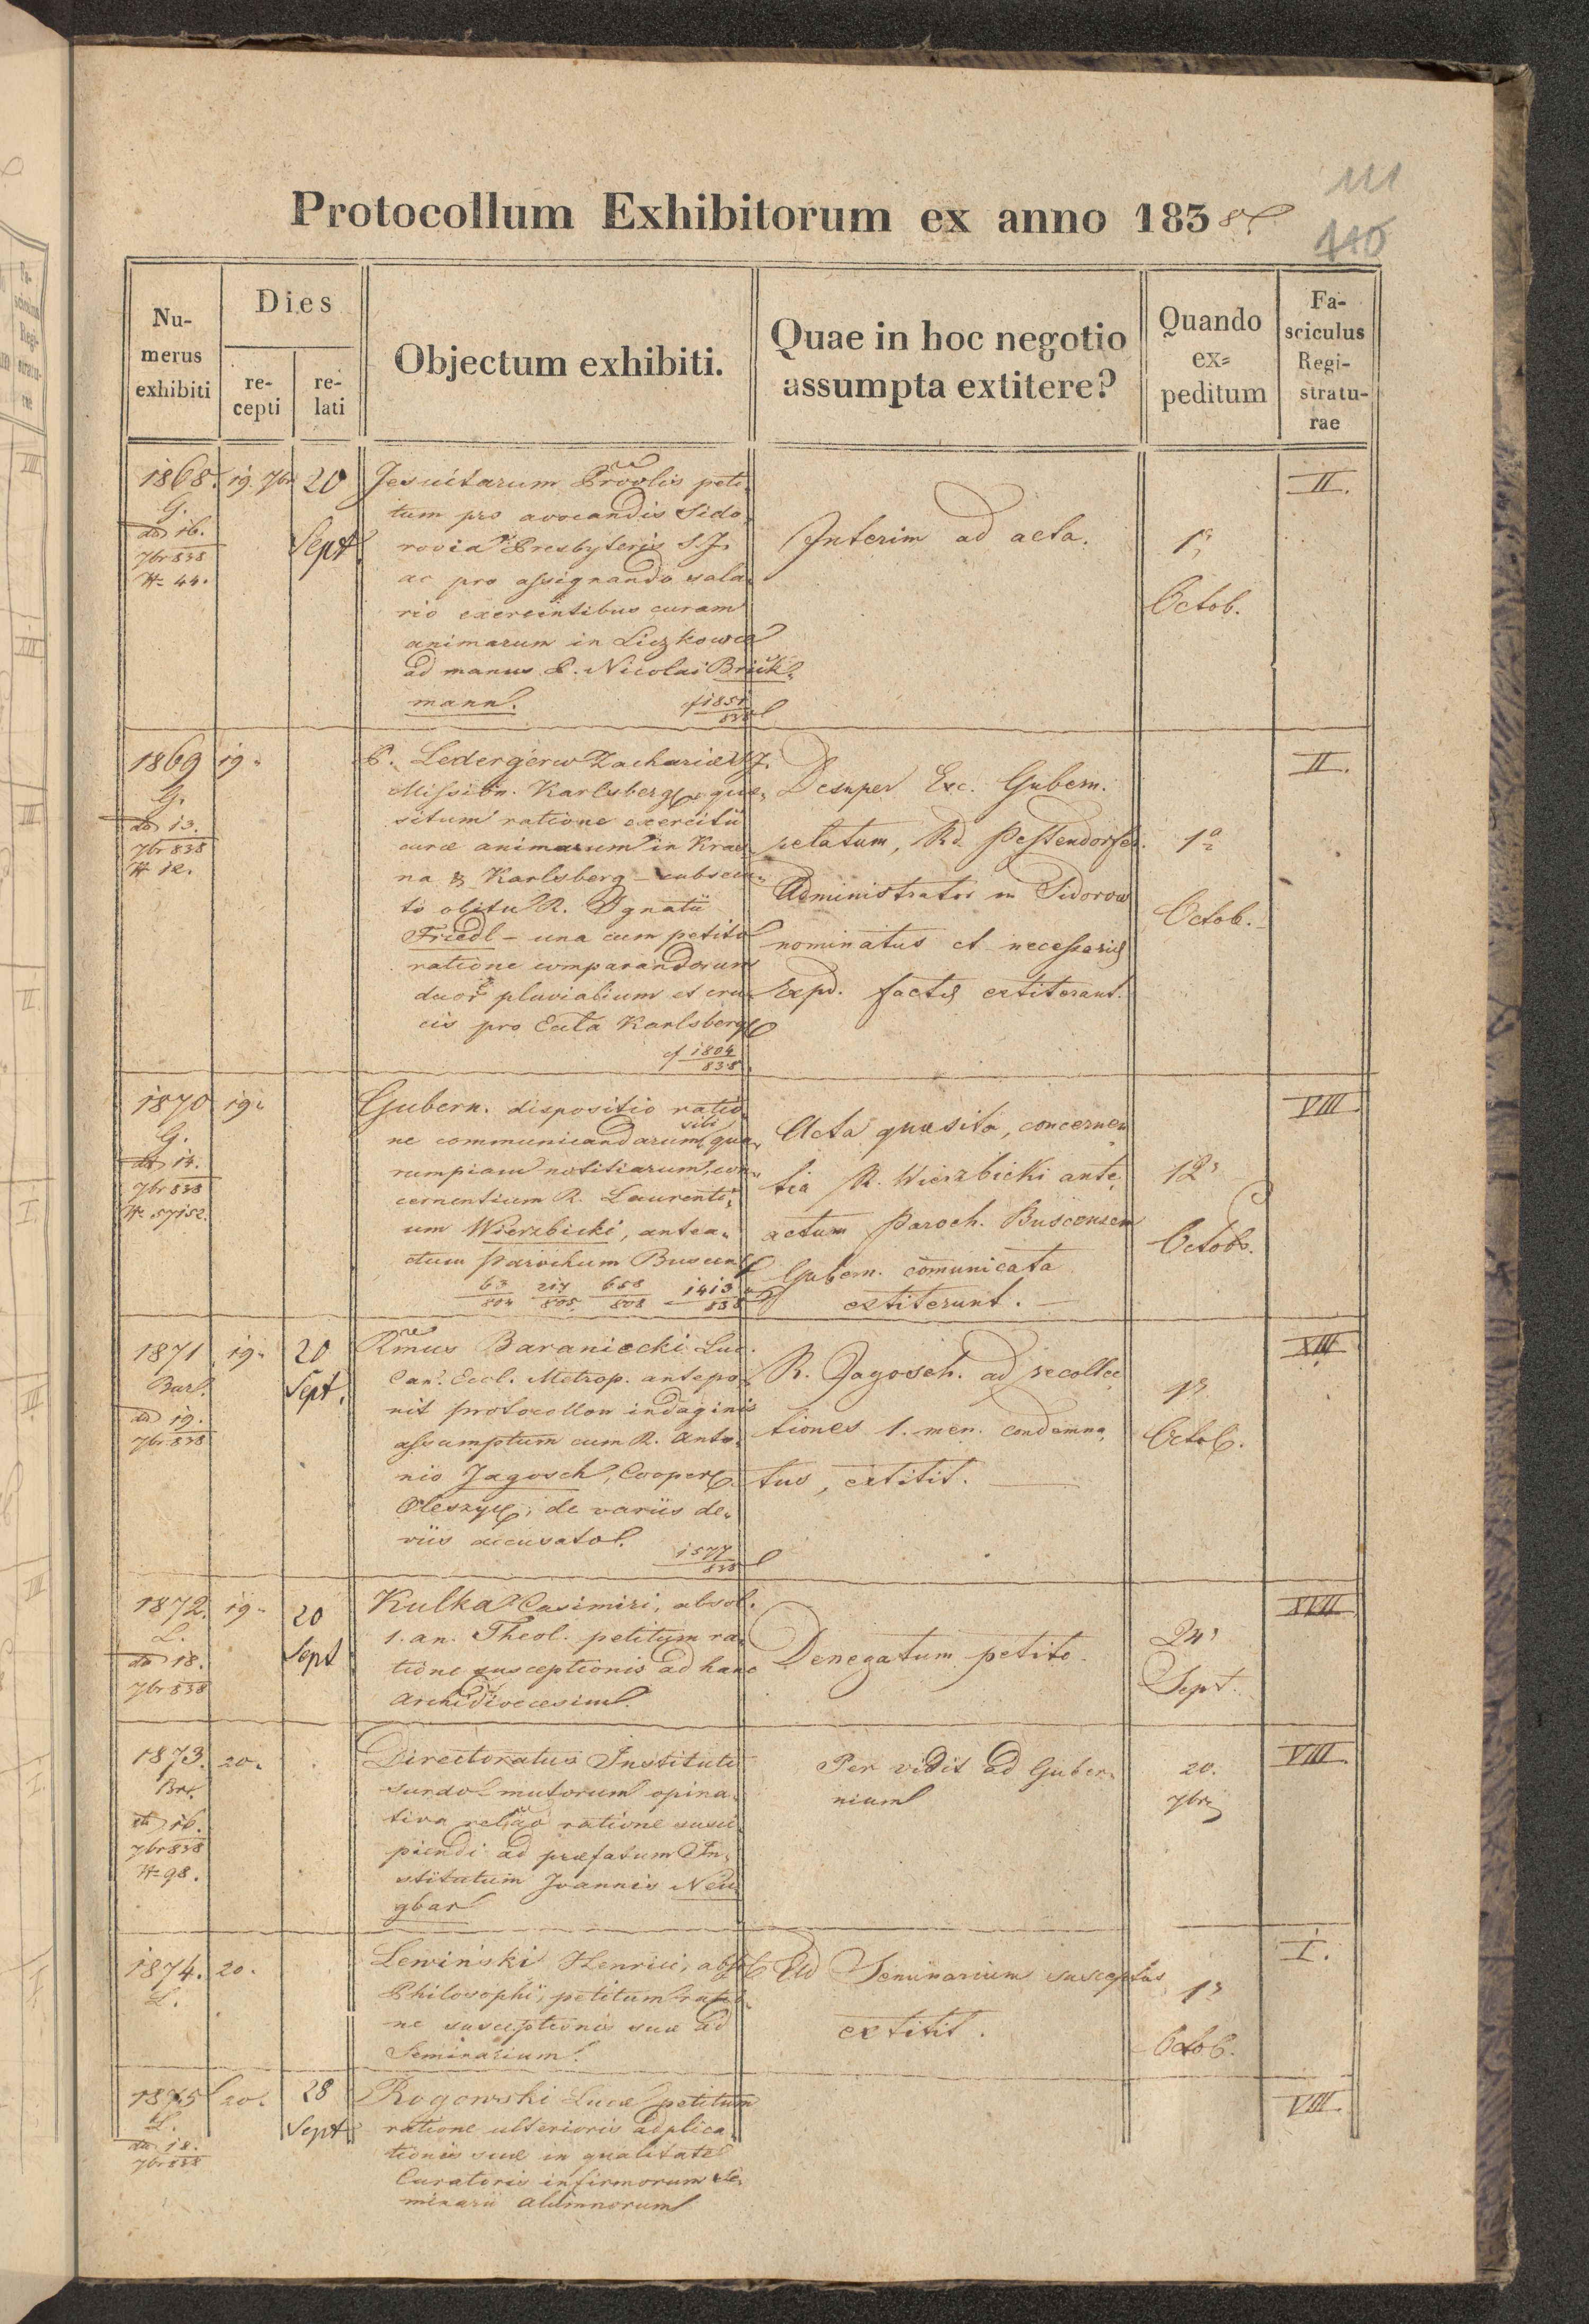 111
110
Protocollum Exhibitorum ex anno 1838
Nu-
merus
exhibiti
Dies
re-
cepti
re-
lati
Objectum exhibiti.
Quae in hoc negotio
assumpta extitere?
Quando
ex=
peditum
Fa-
sciculus
Regi-
stratu-
rae
1868. 19. 7br 20
G.
dd 16.
7br 838
N= 44.
Sept
Jesuitarum Provlis peti-
tum pro avocandis Sido-
rovia Presbyteris S.J.
ac pro assignando sala-
rio exercentibus curam
animarum in Liczkowce
ad manus P. Nicolai Brick-
mann.
cf 1851
838
Interim ad acta.
1a
Octob.
II.
1869 19.
G.
dd 13.
7br 838
N 12.
P. Ledergerw Zachariae S.J.
Mission. Karlsberg quae-
situm ratione exercitii
curae animarum in Kras-
na & Karlsberg - subsecu-
to obitu R. Ignatii
Friedl - una cum petito
ratione comparandorum
duor pluvialium et cru-
cis pro Eccta Karlsberg
cf 1804
838
Desuper Exc. Gubern.
relatum, Rd. Pessendorfer
Administrator in Sidorow
nominatus et necessariae
Expd. factae extiterant.
1a
Octob.
II.
1870 19.
G.
dd 14.
7br 838
N= 57152.
Gubern. dispositio ratio-
ne communicandarum sibi qua-
rumpiam notitiarum, con-
cernentium R. Laurenti-
um Wierzbicki, antea-
ctum parochum Buscens
63 217 658 1413
804 805 808 838
Acta quaesita, concernen-
tia R. Wierzbicki ante-
actum Paroch. Busconsem
Gubern. comunicata
extiterunt. —
12a
Octob.
VIII.
1871 19. 20
Bar.
dd 19.
7br 838
Sept.
Rmus Baraniecki Luc.
Can. Eccl. Metrop. antepo-
nit protocollon indaginis
assumptum cum R. Anto-
nio Jagosch, Cooper.
Oleszyc, de variis de-
viis accusato.
1577
838
R. Jagosch. ad recollec-
tiones 1. men. condemna-
tus, extitit. —
1a
Octob.
XIII
1872. 19. 20
L.
dd 18.
7br 838
Sept
Kulka Casimiri, absol.
1. an. Theol. petitum ra-
tione susceptionis ad hanc
Archidioecesim.
Denegatum petito.
24a
Sept.
XVII.
1873. 20.
Br.
dd 16.
7br 838
N= 98.
Directoratus Instituti
surdo mutorum opina-
tiva relao ratione susci-
piendi ad praefatum In-
stitutum Joannis Neu-
gbar
Per vidit ad Guber-
nium
20.
7bris
VIII.
1874. 20.
L.
Lewinski Henrici, absol
Philosophi, petitum ratio-
ne susceptionis suae ad
Seminarium.
Ad Seminarium susceptus
extitit.
1a
Octob.
I.
1875 20. 28
L.
dd 18.
7br 838
Sept
Rogowski Lucae petitum
ratione ulterioris adplica-
tionis suae in qualitate
Curatoris infirmorum Se-
minarii Alumnorum
VIII.